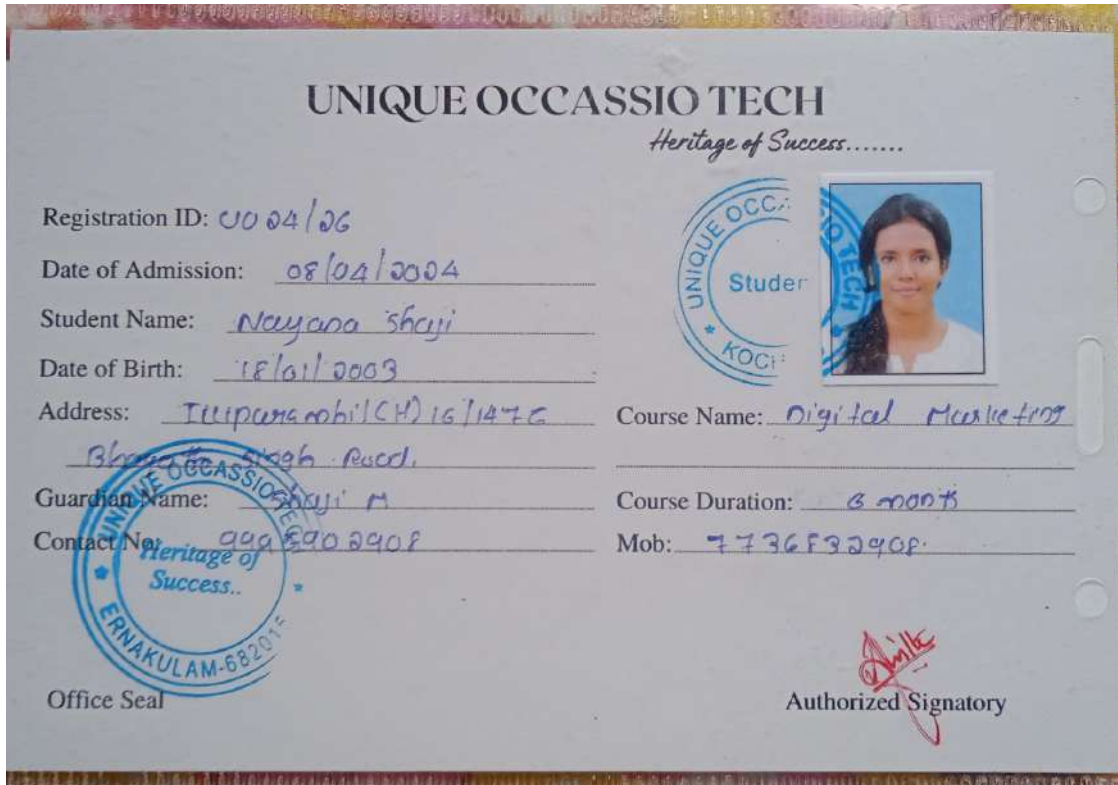 UNIQUE OCCASSIO TECH
Heritage of Success.......
Registration ID: UO 24/26
Date of Admission: 08/04/2024
Student Name: Nayana Shaji
Date of Birth: 18/01/2003
Address: (H) 16/147
Singh Road,
Guardian Name: Shaji M
Contact No:
UNIQUE OCCASSIO TECH
Student
KOCHI
Course Name: Digital Marketing
Course Duration: months
Mob: 7736832908.
UNIQUE OCCASSIO TECH
Heritage of
Success..
ERNAKULAM-68201
Office Seal
Authorized Signatory